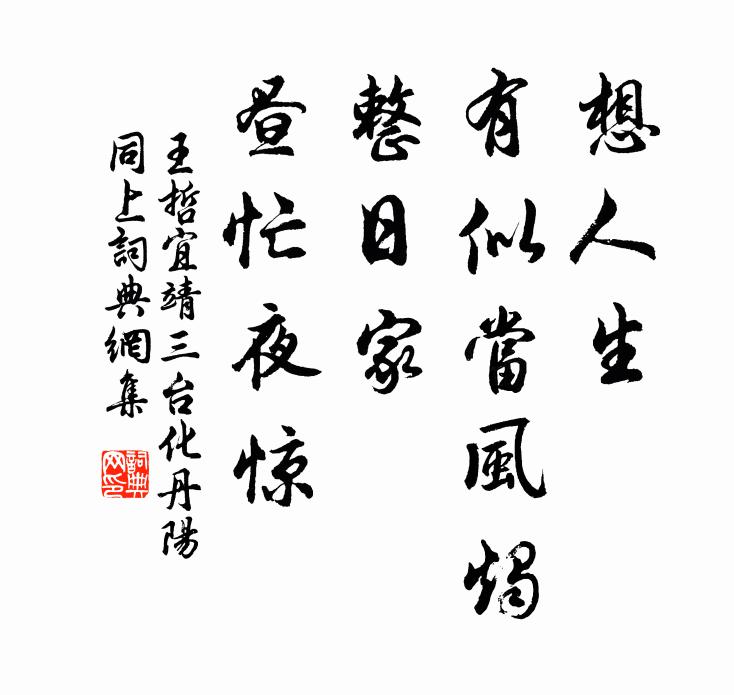 想人生
有似當風燭
整日家
昼忙夜惊
王哲宜靖三台化丹陽
同上詞典網集
詞典网印